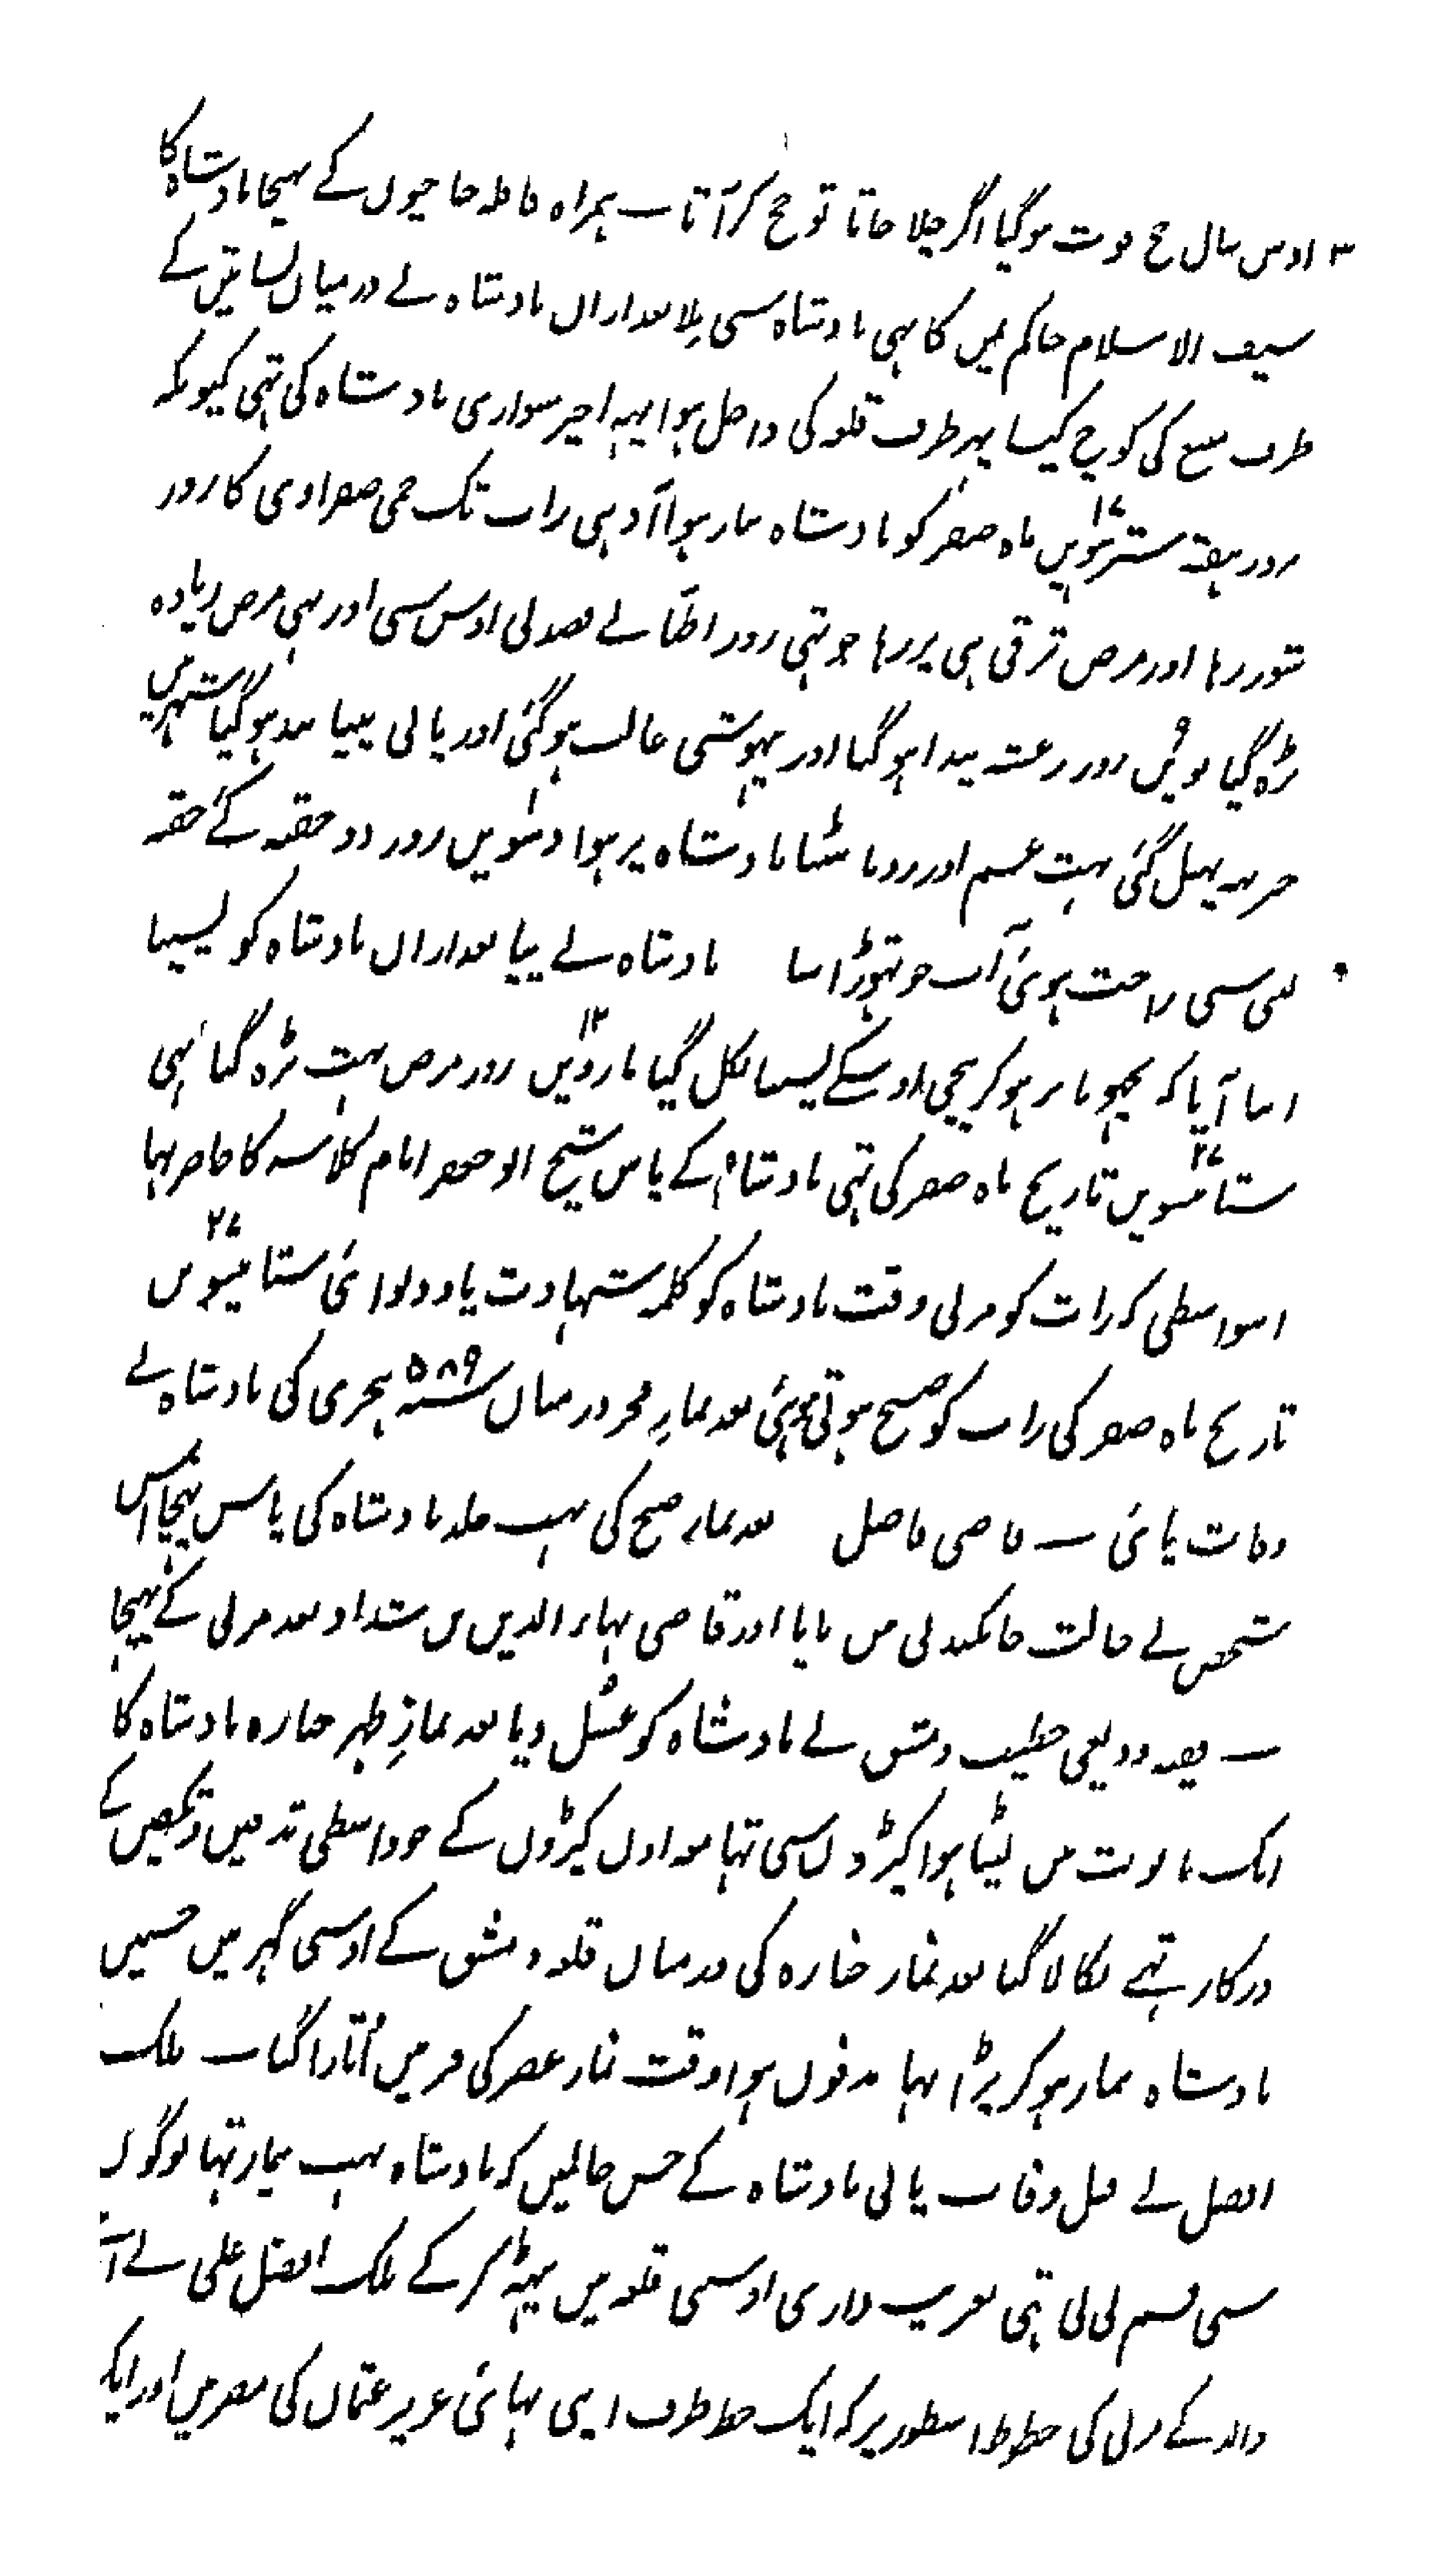 اوس سال حج فوت ہوگیا اگر چلا جاتا تو حج کر آتا ۔ ہمراہ قافلہ حاجیوں کے بھیجا بادشاہ کا
سیف الاسلام حاکم یمن کا بہی بادشاہ سی ملا بعد ازاں بادشاہ نے درمیان بساتین کے
طرف منیع کی کوچ کیا پہر طرف قلعہ کی داخل ہوا یہہ اخیر سواری بادشاہ کی تہی کیونکہ
روز ہفتہ سترہویں ۱۷ ماہ صفر کو بادشاہ بیمار ہوا آدہی رات تک حمی صفراوی کا زور
شور رہا اور مرض ترقی ہی پر رہا چوتہی روز اطبّا نے فصد لی اوس سی اور بہی مرض زیادہ
بڑہ گیا نویں ۹ روز رعشہ پیدا ہوگیا اور بیہوشی غالب ہوگئی اور پانی پینا بند ہوگیا شہر میں
خبر یہہ پہیل گئی بہت غم اور رونا پیٹنا بادشاہ پر ہوا دسویں ۱۰ روز دو حقنہ کئے حقنہ
لینی سی راحت ہوئی آب جو تہوڑا سا بادشاہ نے پیا بعد ازاں بادشاہ کو پسینا
ایسا آیا کہ بچہونا تر ہوکر نیچی اوسکے پسینا نکل گیا بارویں ۱۲ روز مرض بہت بڑہ گیا تہی
ستائیسویں ۲۷ تاریخ ماہ صفر کی تہی بادشاہ کے پاس شیخ ابو جعفر امام کلاسہ کا حاضر تہا
اسواسطی کہ رات کو مرنی وقت بادشاہ کو کلمہ شہادت یاد دلوائی ستائیسویں ۲۷
تاریخ ماہ صفر کی رات کو صبح ہوتی ہوئی بعد نمازِ فجر درمیان سنہ ۵۸۹ ہجری کی بادشاہ نے
وفات پائی ۔ قاضی فاضل بعد نماز صبح کی بہت جلد بادشاہ کی پاس پہنچا اس
شخص نے حالت جانکندنی میں پایا اور قاضی بہاء الدین بن شداد بعد مرنی کے پہنچا
۔ فقیہ دولعی خطیب دمشق نے بادشاہ کو غسل دیا بعد نمازِ ظہر جنازہ بادشاہ کا
ایک تابوت میں لپٹا ہوا کپڑوں سی تہا معہ اون کپڑوں کے جو واسطی تدفین و تکفین کے
درکار تہے نکالا گیا بعد نماز جنازہ کی درمیان قلعہ دمشق کے اوسی گہر میں جسمیں
بادشاہ بیمار ہوکر پڑا تہا مدفون ہوا وقت نماز عصر کی قبر میں اُتارا گیا ۔ ملک
افضل نے قبل وفات پانی بادشاہ کے جس حالمیں کہ بادشاہ بہت بیمار تہا لوگوں
سی قسم لی لی تہی تعزیت داری اوسی قلعہ میں بیٹہہ کر کے ملک افضل علی نے
والد کے مرنی کی خطوط اسطور پر کہ ایک خط طرف اپنی بہائی عزیز عثمان کی مصر میں اور ایک